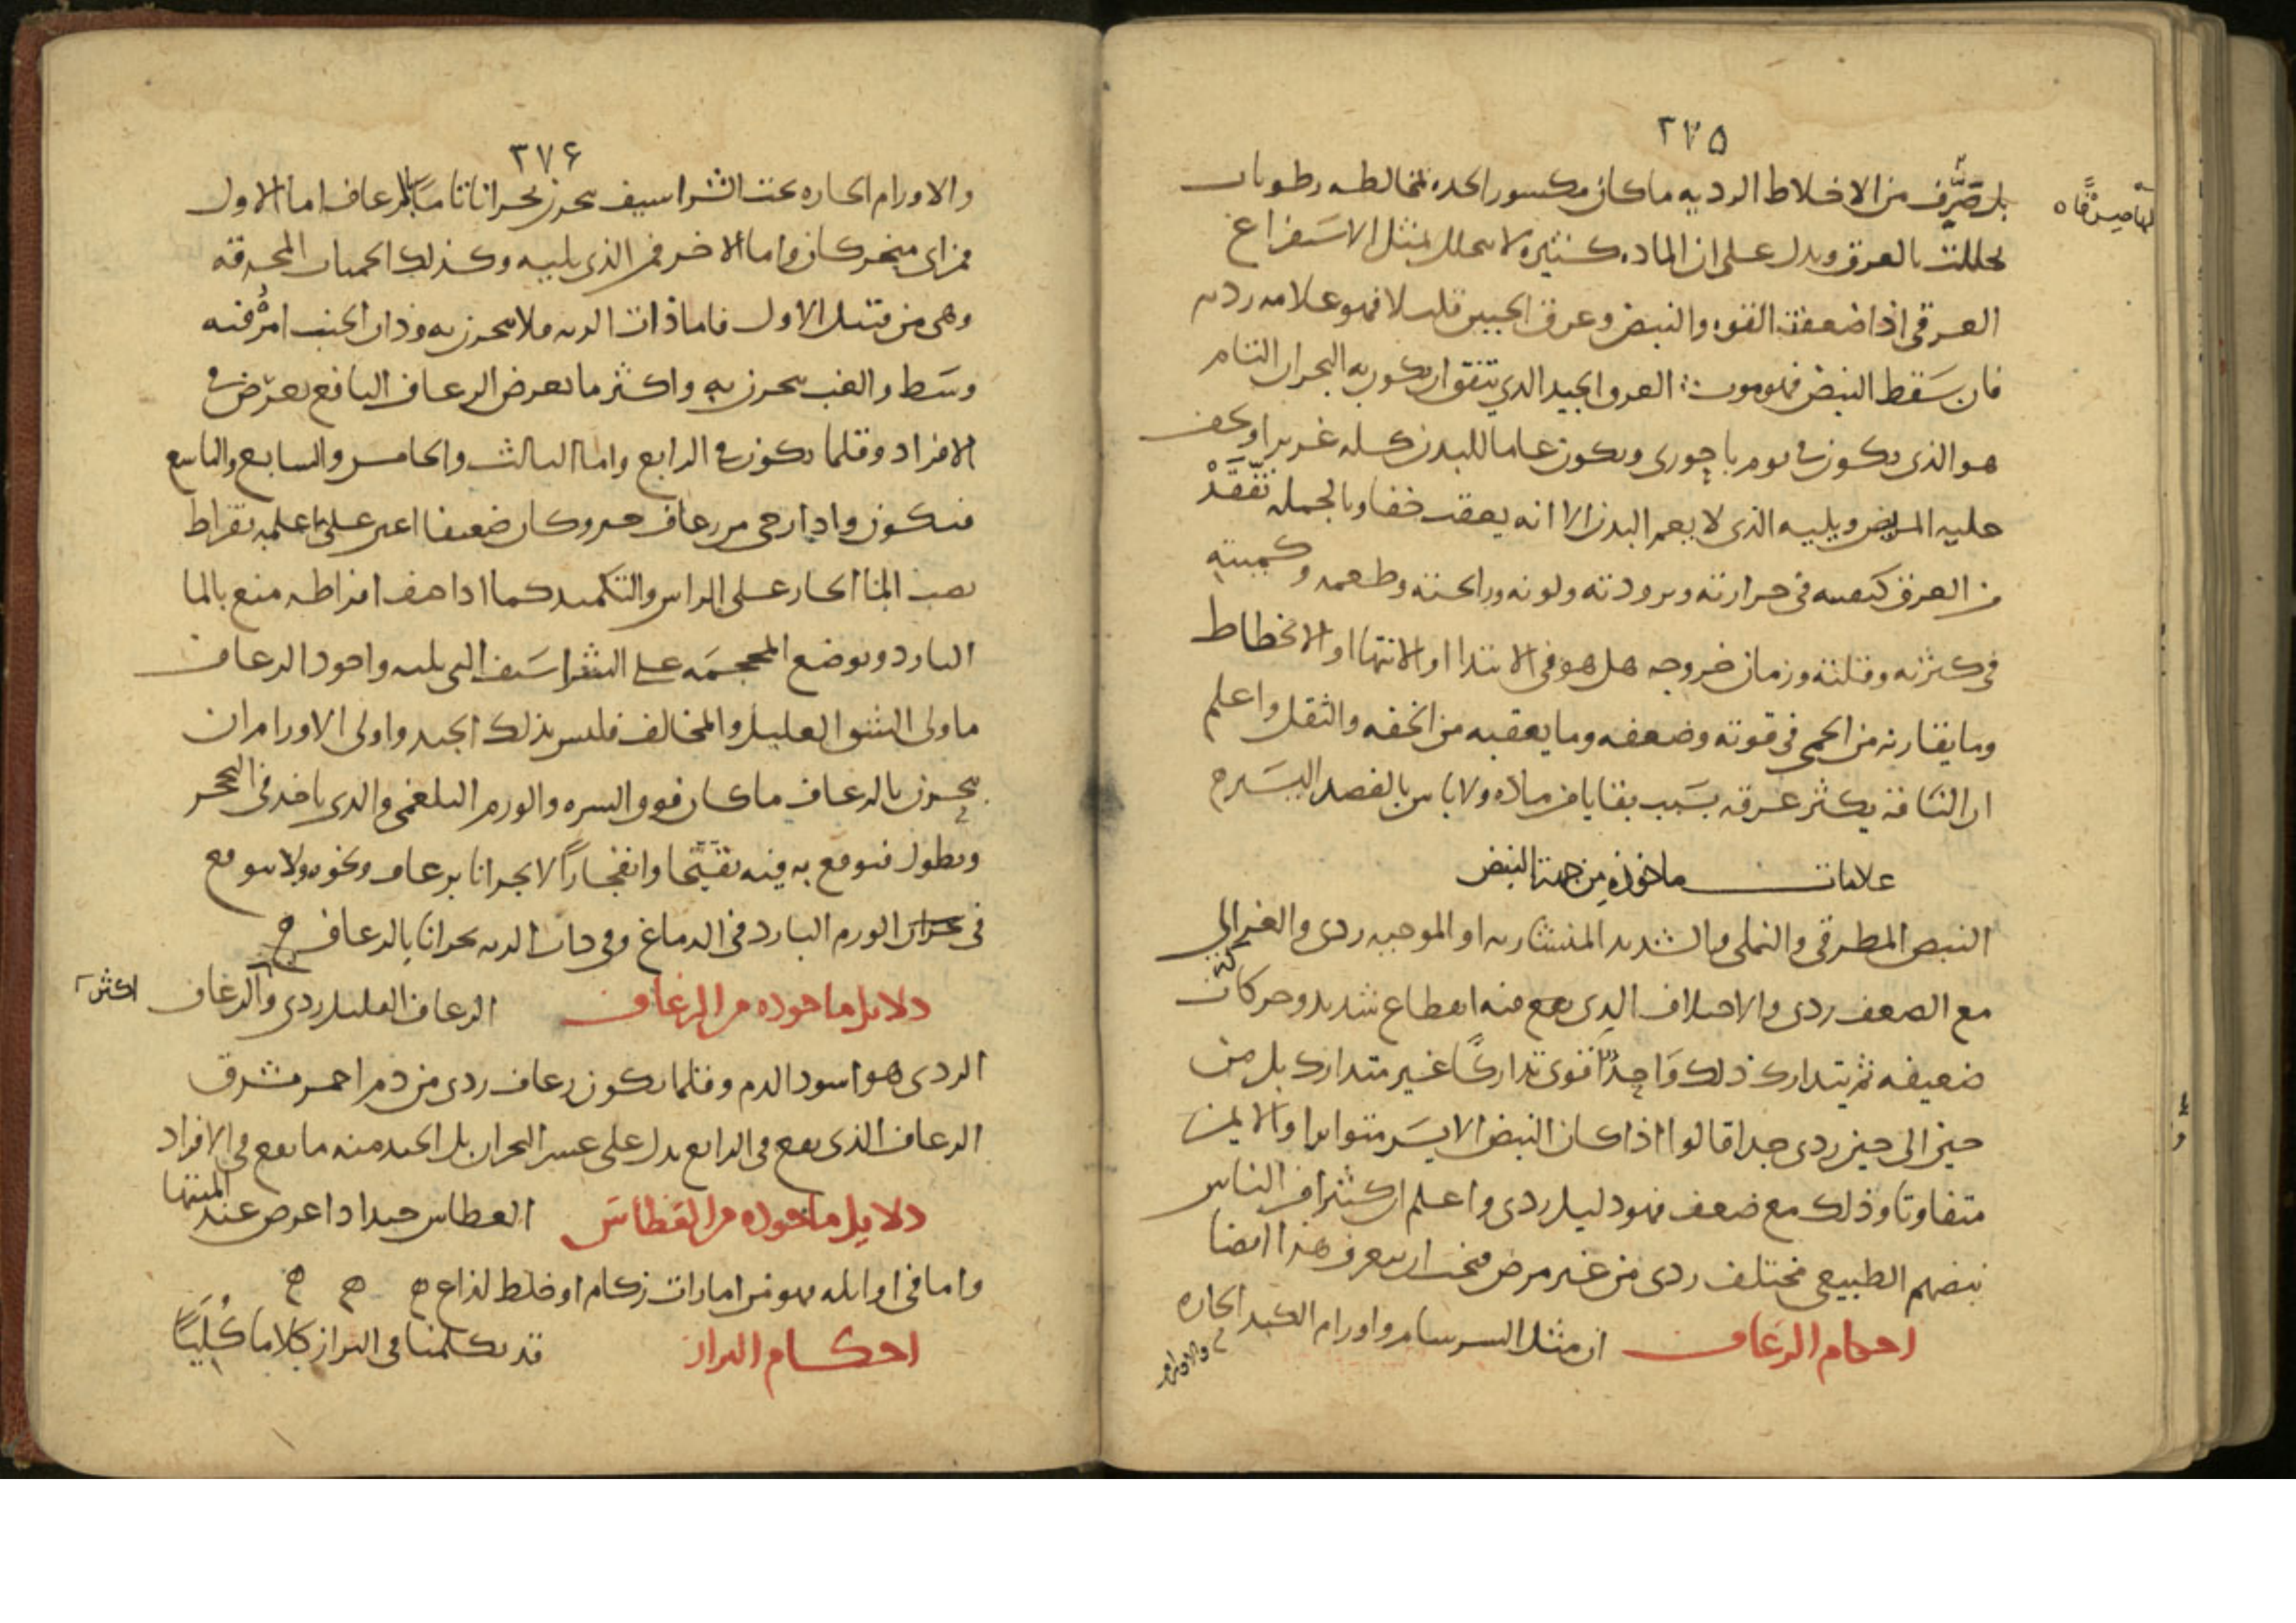 ٢٧٥
بل صرف من الاخلاط الرديه ما كان مكسور الحده لمخالطه رطوبات
تحللت بالعرق ويدل على ان الماده كثيره لا تتحلل بمثل الاستفراغ
العرقى اذا ضعفت القوه والنبض وعرق الجبين قليلا فهو علامه رديه
فان سقط النبض فهو موت العرق الجيد الذي يتفق ان يكون به البحران التام
هو الذى يكون فى يوم باحورى ويكون عاما للبدن كله غزيرا ويخف
عليه المريض ويليه الذى لا يعم البدن الا انه يعقب خفا وبالجمله تفقد
من العرق كيفيته فى حرارته وبرودته ولونه ورائحته وطعمه وكميته
فى كثرته وقلته وزمان خروجه هل هو فى الابتدا او الانتها او الانحطاط
وما يقارنه من الحمى فى قوته وضعفه وما يعقبه من الخفه والثقل واعلم
ان الناقه يكثر عرقه بسبب بقايا من ماده ولا باس بالفصد اليسير ح
علامات ماخوذه من جهة النبض
النبض المطرقى والنملى والشديد المنشاريه او الموجيه ردى والغزالى
مع الضعف ردى والاختلاف الذى يقع فيه انقطاع شديد وحركات
ضعيفه ثم يتدارك ذلك واحد اقوى تداركا غير متدارك بل من
حين الى حين ردى جدا قالوا اذا كان النبض الايسر متواترا والايمن
متفاوتا وذلك مع ضعف فهو دليل ردى واعلم ان كثيرا من الناس
نبضهم الطبيعى مختلف ردى من غير مرض فيجب ان يتعرف هذا ايضا
احكام الرعاف ان مثل السرسام واورام الكبد الحاره
والاورام
٢٧۶
والاورام الحاره تحت الشراسيف تتبحرن بحرانا تاما بالرعاف اما الاول
فمن اى منخر كان واما الاخر فمن الذى يليه وكذلك الحميات المحرقه
وهى من قبيل الاول فاما ذات الريه فلا تبحرن به وذات الجنب امره فيه
وسط والغب تبحرن به واكثر ما يعرض الرعاف النافع يعرض فى
الافراد وقلما يكون فى الرابع واما الثالث والخامس والسابع والتاسع
فيكون واذا رجى من رعاف خير وكان ضعيفا اعين على ما علمه بقراط
بصب الما الحار على الراس والتكميد كما اذا خيف افراطه منع بالما
البارد ويوضع المحجمه على الشراسيف التى يليه واجود الرعاف
ما ولى الشق العليل والمخالف فليس بذلك الجيد واولى الاورام ان
تبحرن بالرعاف ما كان فوق السره والورم البلغمى والذى ياخذ فى التحجر
ويطول فيتوقع به فيه تقيحا وانفجارا لا بحرانا برعاف ونحوه ولا يتوقع
فى الورم البارد فى الدماغ وفى ذات الريه بحرانا بالرعاف ح
دلايل ماخوذه من الرعاف الرعاف القليل ردى والرعاف اكثر
الردى هو اسود الدم وقلما يكون رعاف ردى من دم احمر مشرق
الرعاف الذى يقع فى الرابع يدل على عسر البحران بل الجيد منه ما يقع فى الافراد
دلايل ماخوذه من العطاس العطاس جيد اذا عرض عند المنتها
واما فى اوائله فهو من امارات زكام او خلط لذاع ح ح ح
احكام البراز قد تكلمنا فى البراز كلاما كليا